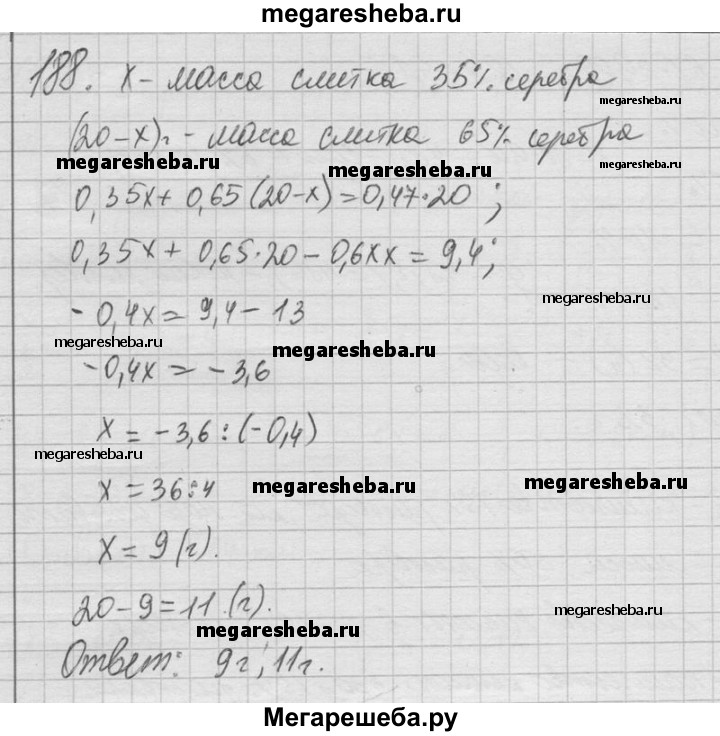 megaresheba.ru
188. x - масса слитка 35% серебра
megaresheba.ru
(20-x)г - масса слитка 65% серебра
megaresheba.ru megaresheba.ru megaresheba.ru
0,35x + 0,65(20-x) = 0,47·20;
0,35x + 0,65·20 - 0,6xx = 9,4;
megaresheba.ru
- 0,4x = 9,4 - 13
megaresheba.ru megaresheba.ru
-0,4x = -3,6
x = -3,6 : (-0,4)
megaresheba.ru
x = 36:4
megaresheba.ru
x = 9 (г).
20-9=11.(г).
megaresheba.ru megaresheba.ru
Ответ: 9г; 11г.
Мегарешеба.ру